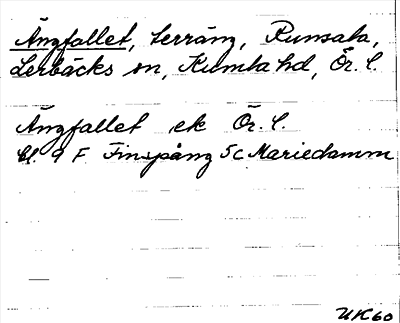 Ängfallet, terräng, Runsala,
Lerbäcks sn, Kumla hd, Ör. l.
Ängfallet ek Ör. l.
bl. 9 F Finspång 5c Mariedamm
UK60